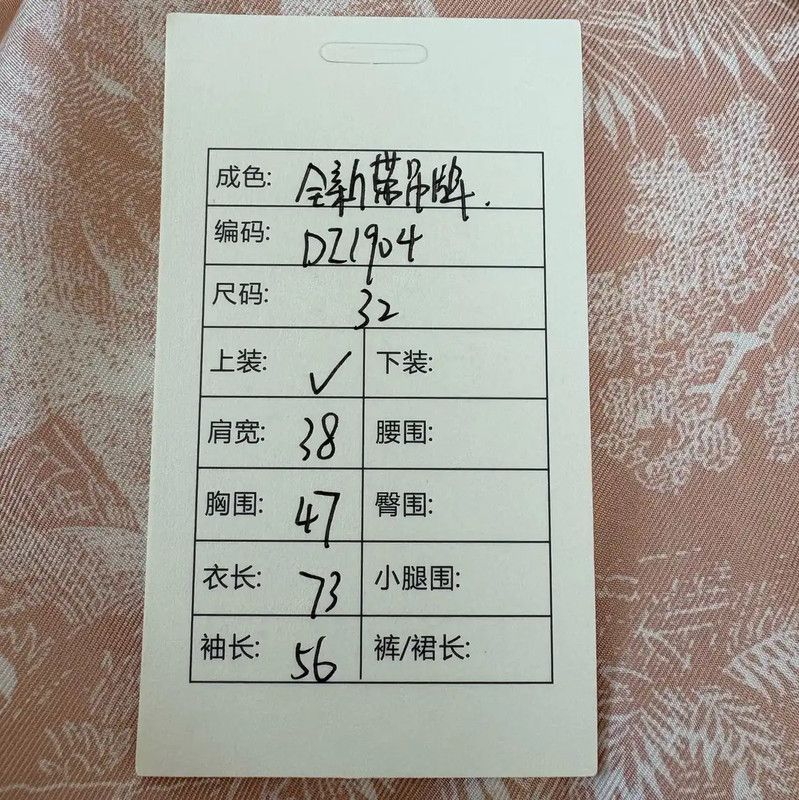 成色: 全新带吊牌.
编码: DZ1904
尺码: 32
上装: ✓ 下装:
肩宽: 38 腰围:
胸围: 47 臀围:
衣长: 73 小腿围:
袖长: 56 裤/裙长: